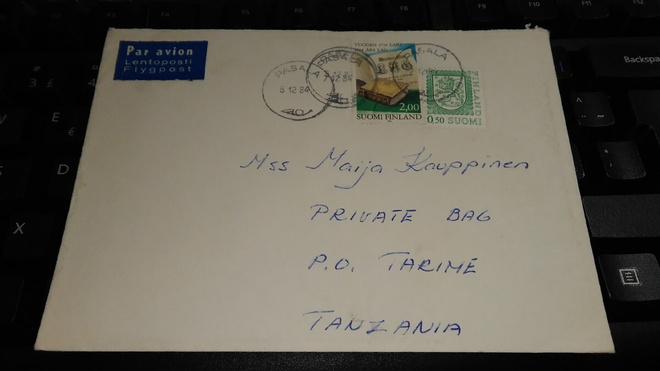 Par avion
Lentoposti
Flygpost
8.12.84
2,00
SUOMI FINLAND
FINLAND
0,50 SUOMI
Mss Maija Kauppinen
PRIVATE BAG
P.O. TARIME
TANZANIA
Backspa
X